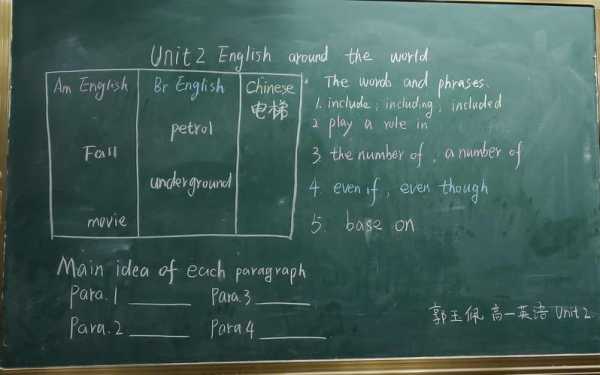 Unit 2 English around the world
Am English Br English Chinese
电梯
petrol
Fall
underground
movie
The words and phrases.
1. include; including; included
2 play a role in
3 the number of , a number of
4. even if, even though
5. base on
Main idea of each paragraph
Para.1 ______ Para.3 ______
Para.2 ______ Para 4 ______
郭玉佩 高一英语 Unit 2